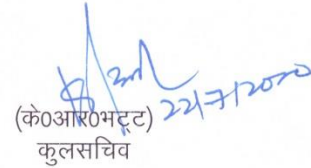 22/7/2020
(के0आर0भट्ट)
कुलसचिव